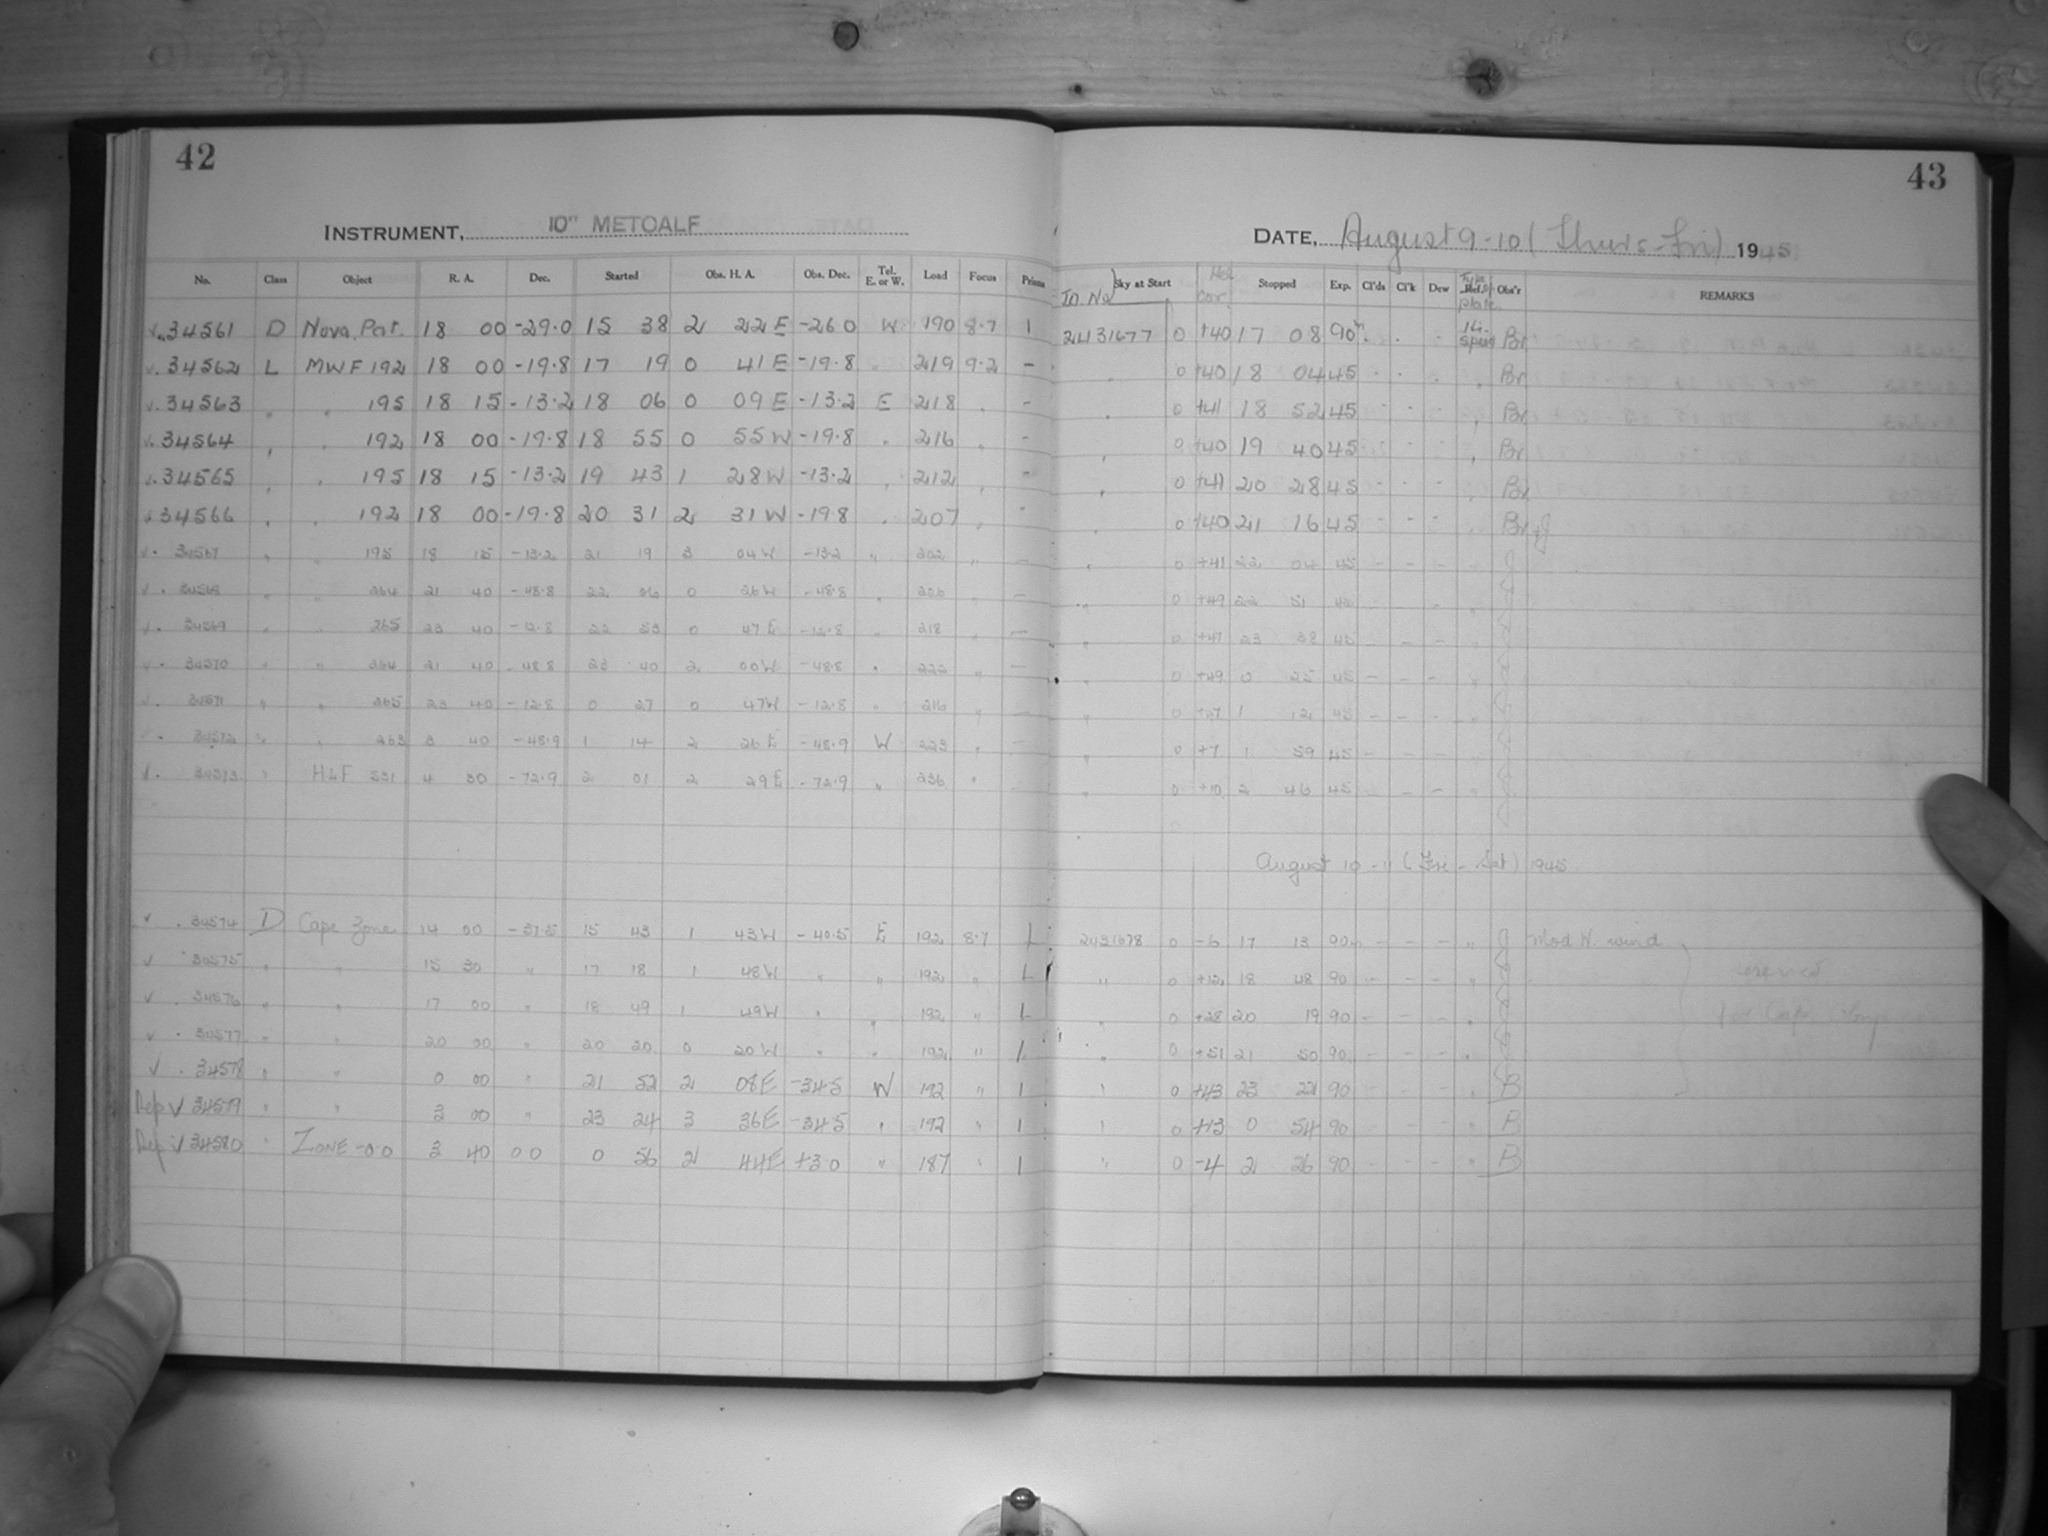 42
INSTRUMENT, 10" METCALF
No. Class Object R. A. Dec. Started Obs. H. A. Obs. Dec. Tel. E. or W. Load Focus Prism
34561 D Nova Pat. 18 00 -29.0 15 38 2 22 E -26.0 W 190 8.7 1
34562 L MWF 192 18 00 -19.8 17 19 0 41 E -19.8 " 219 9.2 -
34563 " " 195 18 15 -13.2 18 06 0 09 E -13.2 E 218 " -
34564 " " 192 18 00 -19.8 18 55 0 55 W -19.8 " 216 " -
34565 " " 195 18 15 -13.2 19 43 1 28 W -13.2 " 212 " -
34566 " " 192 18 00 -19.8 20 31 2 31 W -19.8 " 207 " -
34567 " " 195 18 15 -13.2 21 19 3 04 W -13.2 " 202 " -
34568 " " 264 21 40 -48.8 22 06 0 26 W -48.8 " -
34569 " " 265 23 40 -12.8 22 53 0 47 E -12.8 " 218 " -
34570 " " 264 21 40 -48.8 23 40 2 00 W -48.8 " 222 " -
34571 " " 265 23 40 -12.8 0 27 0 47 W -12.8 " 216 " -
34572 " " 263 3 40 -48.9 1 14 2 26 E -48.9 W 223 " -
34573 " HLF 531 4 30 -72.9 2 01 2 29 E -72.9 " 236 " -
34574 D Cape Zone 14 00 -37.5 15 43 1 43 W -40.5 E 192 8.7 1
34575 " " 15 30 " 17 18 1 48 W " " 192 " 1
34576 " " 17 00 " 18 49 1 49 W " " 192 " 1
34577 " " 20 00 " 20 20 0 20 W " " 192 " 1
34578 " " 0 00 " 21 52 2 08 E -34.5 W 192 " 1
Rep 34579 " " 3 00 " 23 24 3 36 E -34.5 " 192 " 1
Rep 34580 " ZONE -00 3 40 00 0 56 2 44 E +3.0 " 187 " 1
43
DATE, August 9-10 (Thurs-Fri) 1945
J.D. No Sky at Start Hel. cor. Stopped Exp. Cl'ds Cl'k Dew Type plate Obs'r REMARKS
2431677 0 +40 17 08 90m - - - Br
" 0 +40 18 04 45 - - - " Br
" 0 +41 18 52 45 - - - " Br
" 0 +40 19 40 45 - - - " Br
" 0 +41 20 28 45 - - - " Br
" 0 +40 21 16 45 - - - " Br + J
" 0 +41 22 04 45 - - - " J
" 0 +49 22 51 45 - - - " J
" 0 +47 23 38 45 - - - " J
" 0 +49 0 25 45 - - - " J
" 0 +47 1 12 45 - - - " J
" 0 +7 1 59 45 - - - " J
" 0 +10 2 46 45 - - - " J
August 10-11 (Fri - Sat) 1945
2431678 0 -6 17 13 90m - - - " J Mod N. wind
" 0 +12 18 48 90 - - - " J reserved
" 0 +28 20 19 90 - - - " J for Cape
" 0 +51 21 50 90 - - - " J
" 0 +43 23 22 90 - - - " B
" 0 +13 0 54 90 - - - " B
" 0 -4 2 26 90 - - - " B